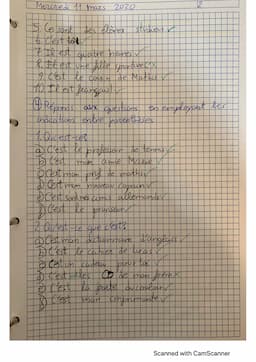 Mercredi 11 mars 2020
5. Ce sont des élèves studieux
6. C'est toi
7. Il est quatre heures
8. C'est une fille sportive
9. C'est le cousin de Mathis
10. Il est français
Réponds aux questions en employant les
indications entre parenthèses
1. Qui est-ce?
a) C'est le professeur de tennis
b) C'est mon amie Marie
c) C'est mon prof de maths
d) C'est mon nouveau copain
e) Ce sont nos amis allemands
f) C'est le
2. Qu'est-ce que c'est?
a) C'est mon dictionnaire d'anglais
b) C'est le cahier de Lucas
c) C'est un cadeau pour toi
d) de mon frère
e) C'est la porte
f) C'est mon imprimante
Scanned with CamScanner